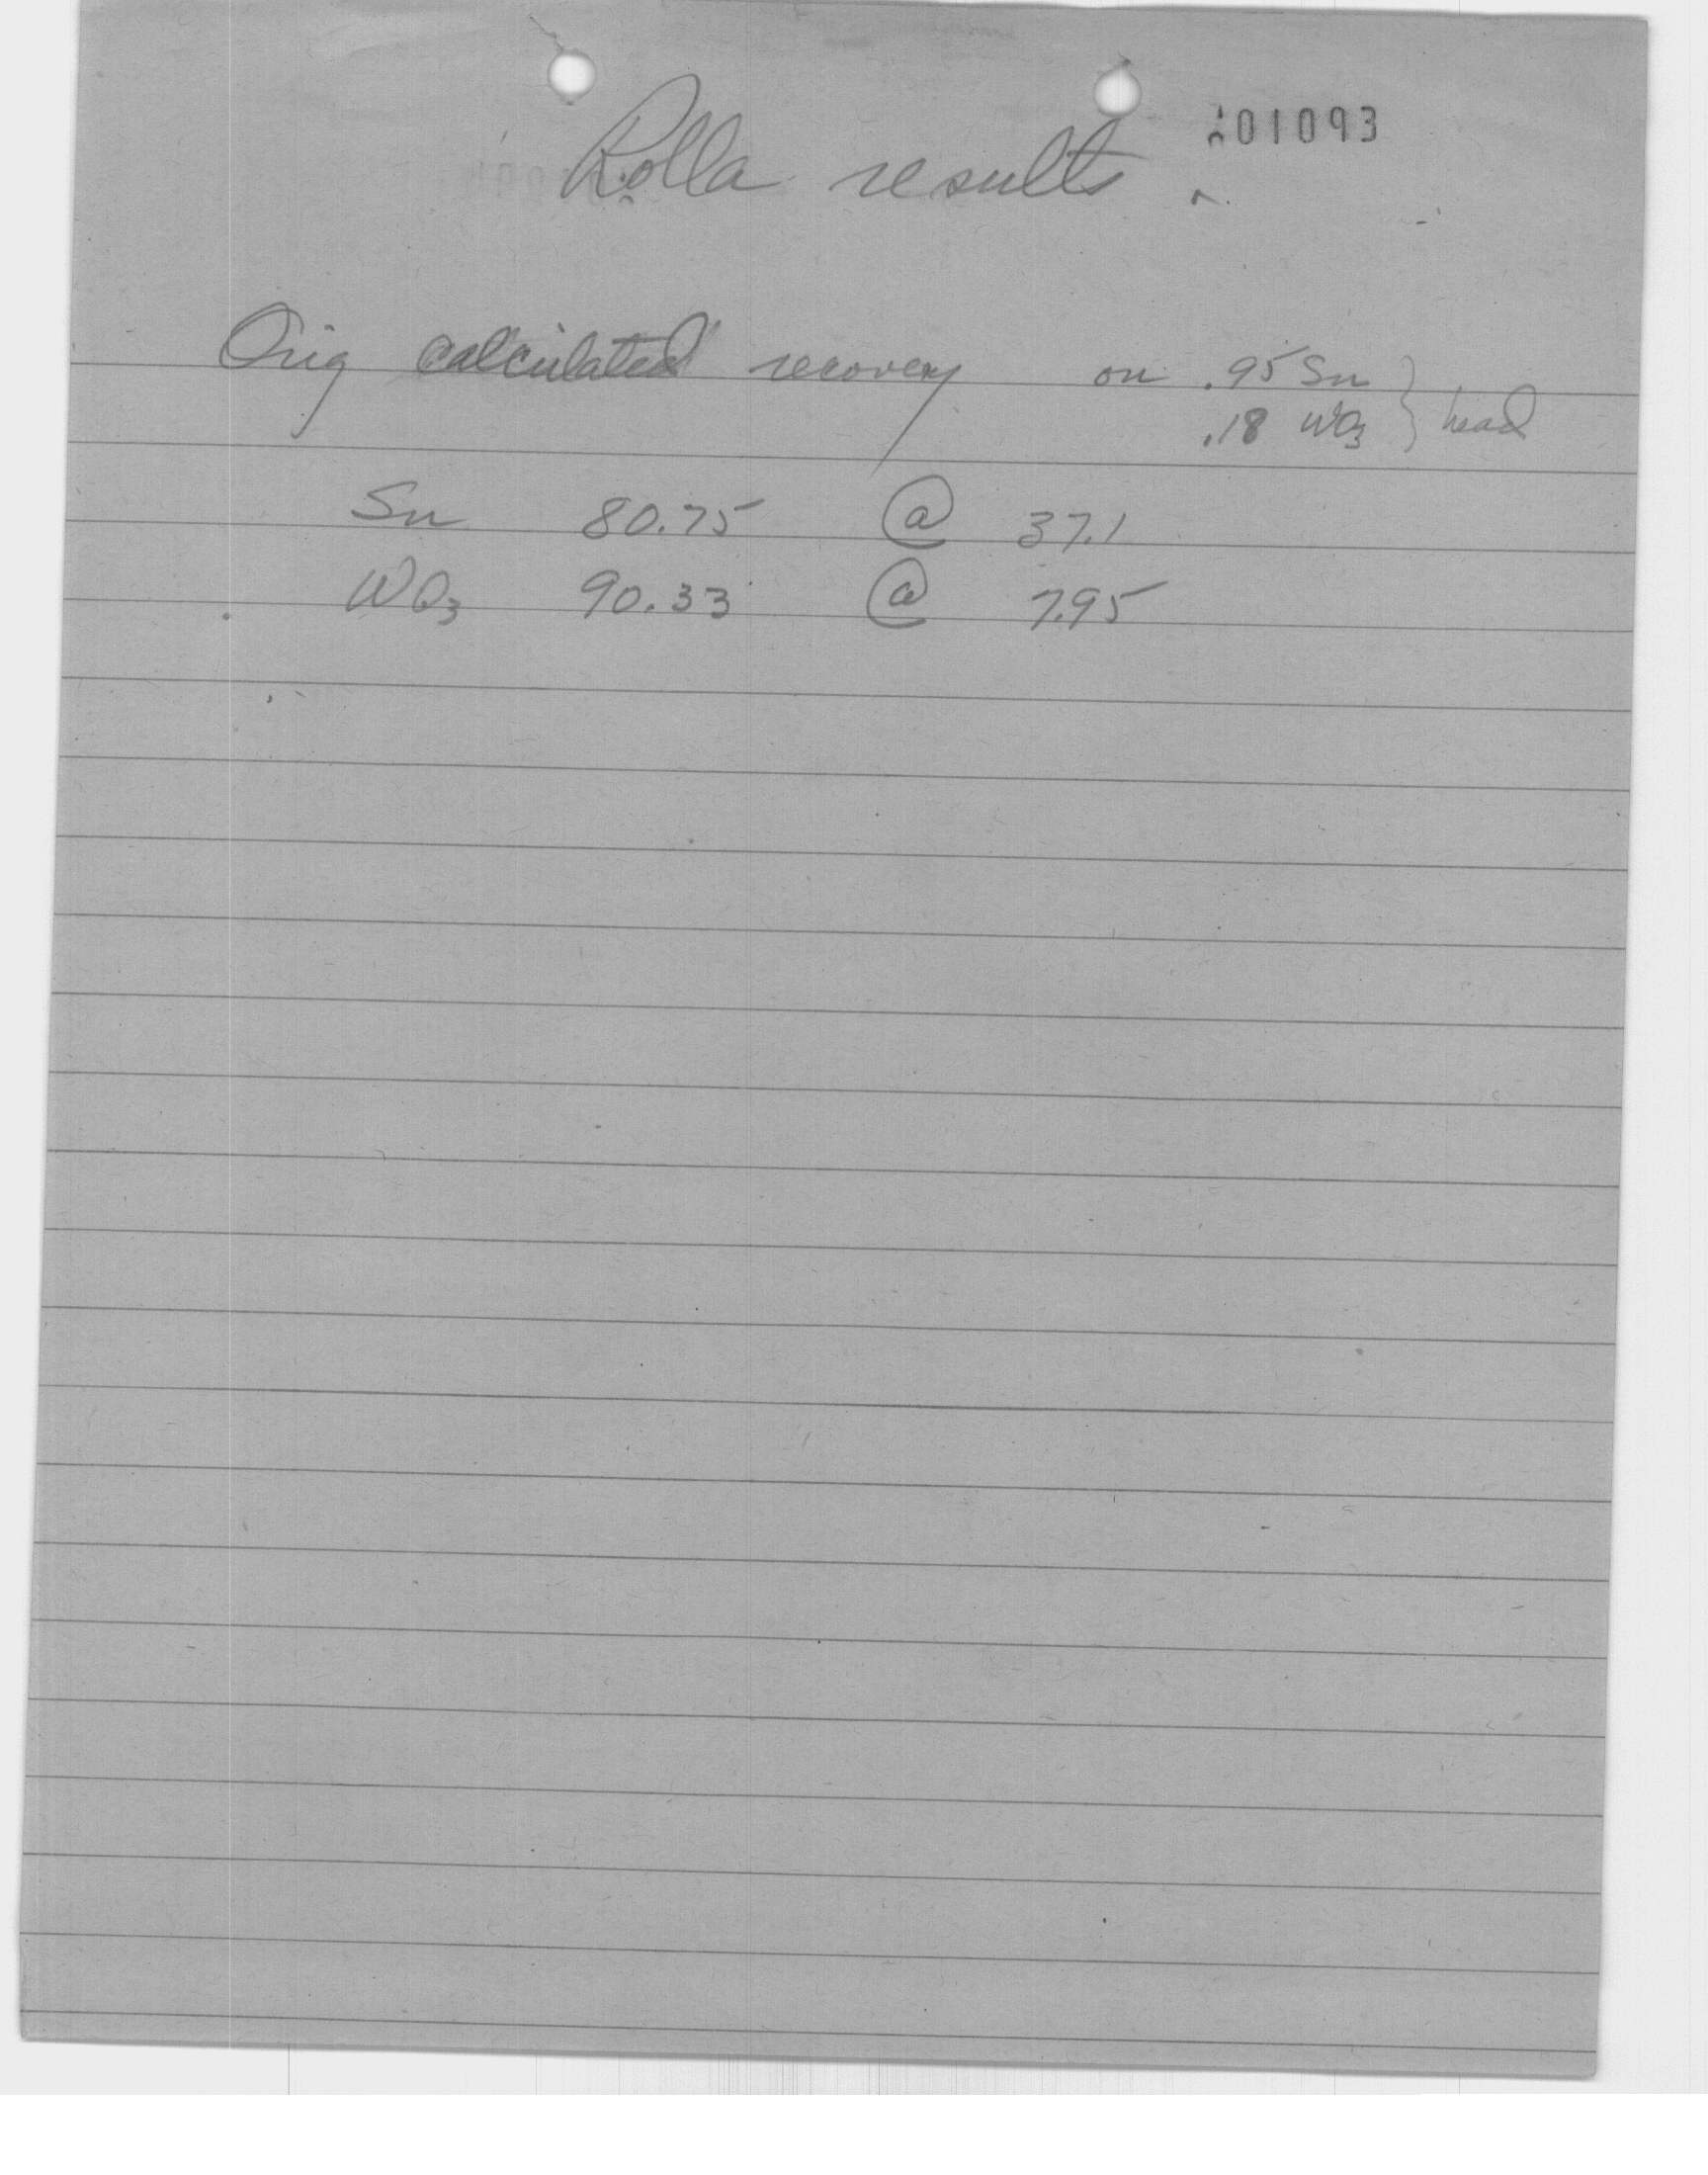 Rolla results
Orig calculated recovery on .95 Sn } head
.18 WO3
Sn 80.75 @ 37.1
WO3 90.33 @ 7.95